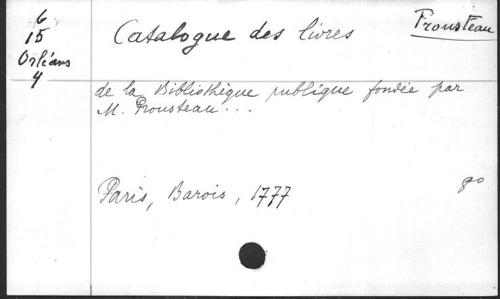 6
15
Orléans
4
Catalogue des livres
Prousteau
de la Bibliothèque publique fondée par
M. Prousteau...
Paris, Barois, 1777
8o